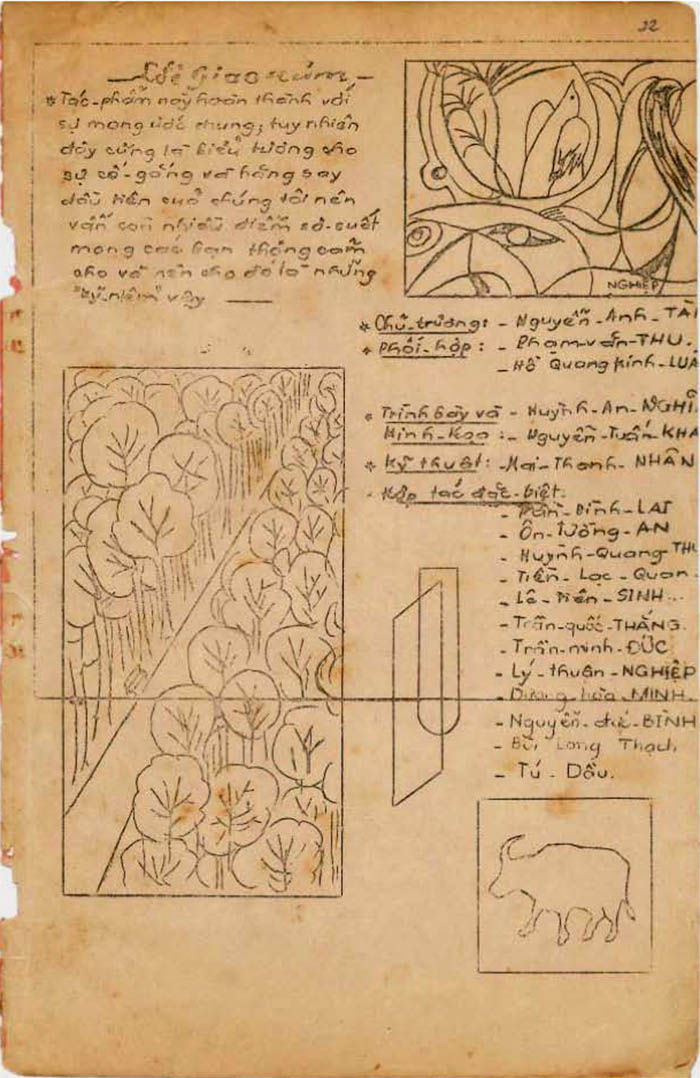 22
* Tác-phẩm nầy hoàn thành với
sự mong ước chung; tuy nhiên
đây cũng là biểu tượng cho
sự cố-gắng và hăng say
đầu tiên của chúng tôi nên
vẫn còn nhiều điểm sơ-suất
mong các bạn thông cảm
cho và nên cho đó là những
"kỷ-niệm" vậy
NGHIỆP
* Chủ-trương: - Nguyễn-Anh-TÀI
* Phối-hợp: - Phạm-văn-THU.
- Hồ Quang Kính-LUÂ
* Trình bày và - Huỳnh-An-NGHĨ
- Nguyễn-Tuấn-KHA
* Kỹ thuật: - Mai-Thanh-NHÂN
- Hợp tác đặc-biệt.
- Trần-Đình-LAI
- Ôn-Tường-AN
- Huỳnh-Quang-THU
- Tiền-Lạc-Quan-
- Lê-Tiến-SINH...
- Trần-quốc-THẮNG.
- Trần-minh-ĐỨC
- Lý-thuận-NGHIỆP
- Dương-hứa-MINH
- Nguyễn-đức-BÌNH
- Bùi Long Thạch
- Tú-Dầu.